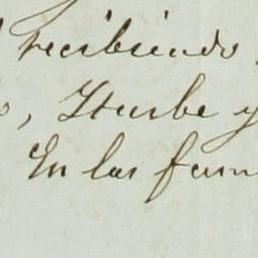 recibiendo
, Iturbe y
En las fun